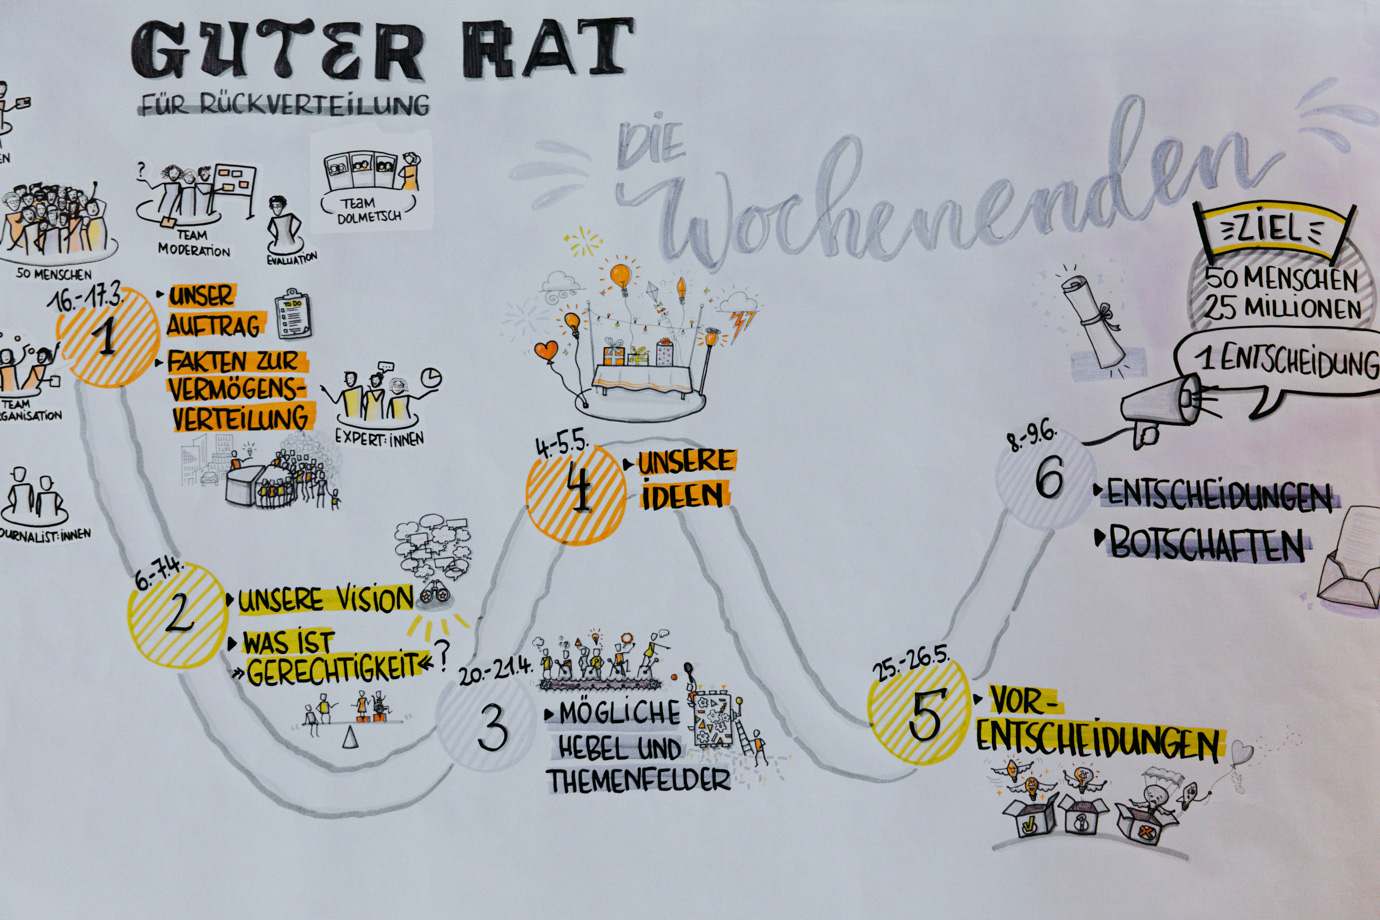 GUTER RAT
FÜR RÜCKVERTEILUNG
DIE
Wochenenden
EN
50 MENSCHEN
?
TEAM
MODERATION
EVALUATION
TEAM
DOLMETSCH
TEAM
RGANISATION
OURNALIST:INNEN
16.-17.3.
1
UNSER
AUFTRAG
TO DO
FAKTEN ZUR
VERMÖGENS-
VERTEILUNG
EXPERT:INNEN
6.-7.4.
2
UNSERE VISION
WAS IST
»GERECHTIGKEIT«?
20.-21.4.
3
MÖGLICHE
HEBEL UND
THEMENFELDER
4.-5.5.
4
UNSERE
IDEEN
25.-26.5.
5
VOR-
ENTSCHEIDUNGEN
8.-9.6.
6
ENTSCHEIDUNGEN
BOTSCHAFTEN
ZIEL
50 MENSCHEN
25 MILLIONEN
1 ENTSCHEIDUNG